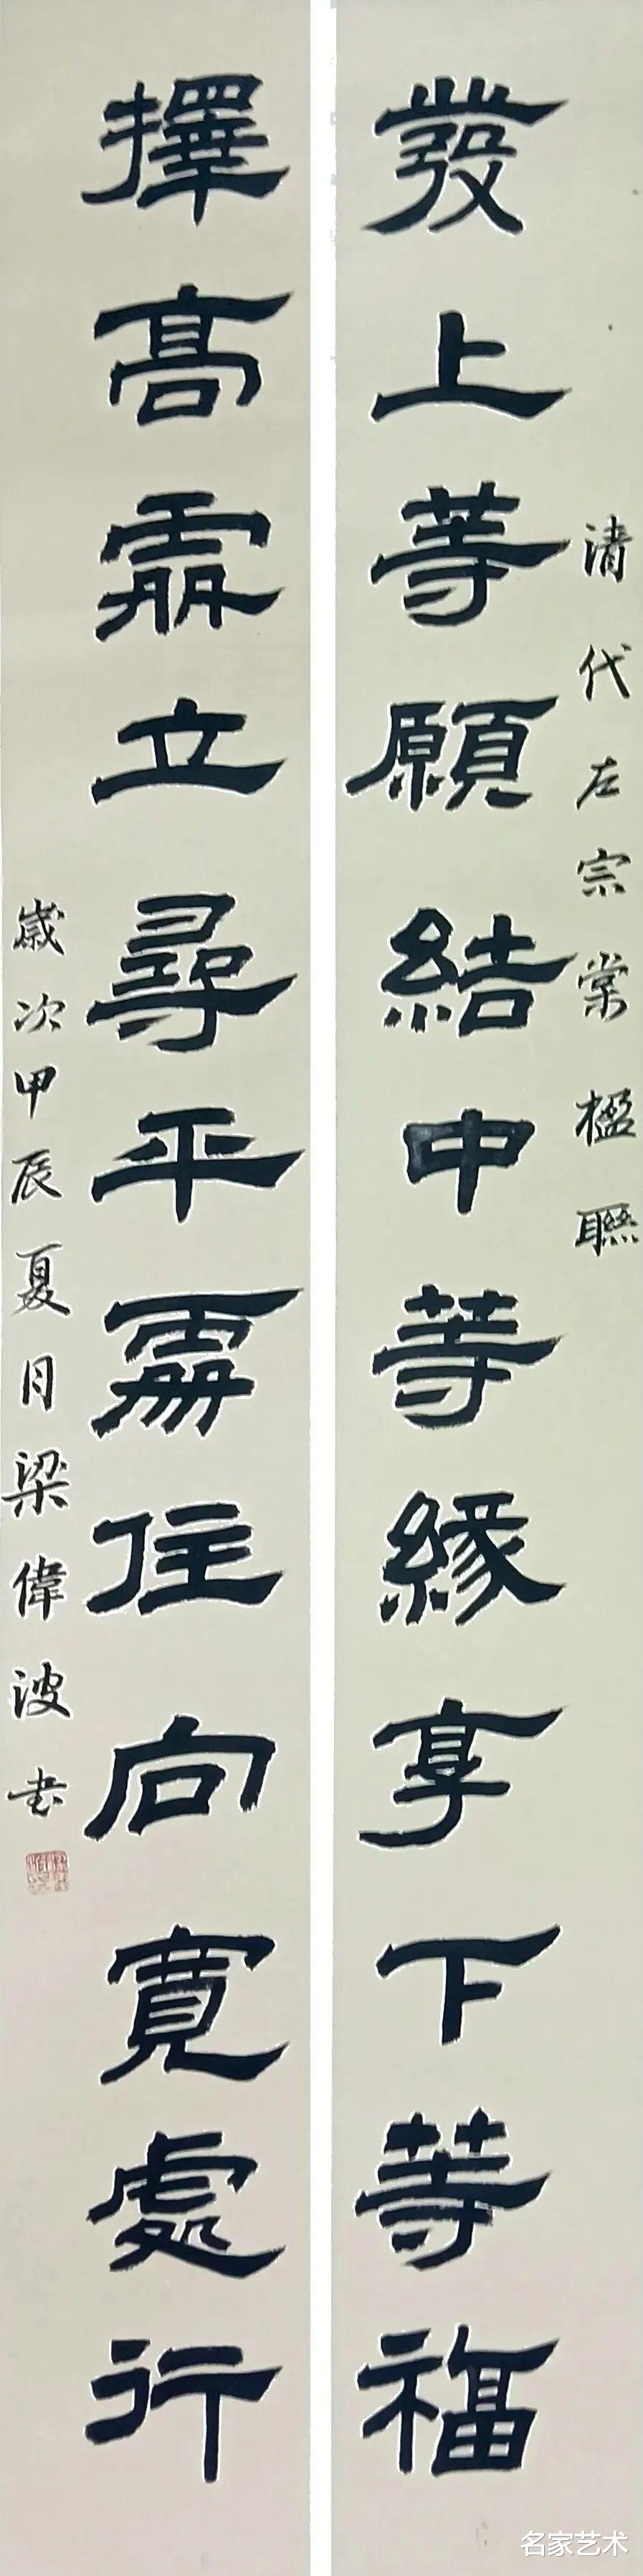 清代左宗棠楹聯
發上等願結中等緣享下等福
擇高處立尋平處住向寬處行
歲次甲辰夏月梁偉波书
名家艺术